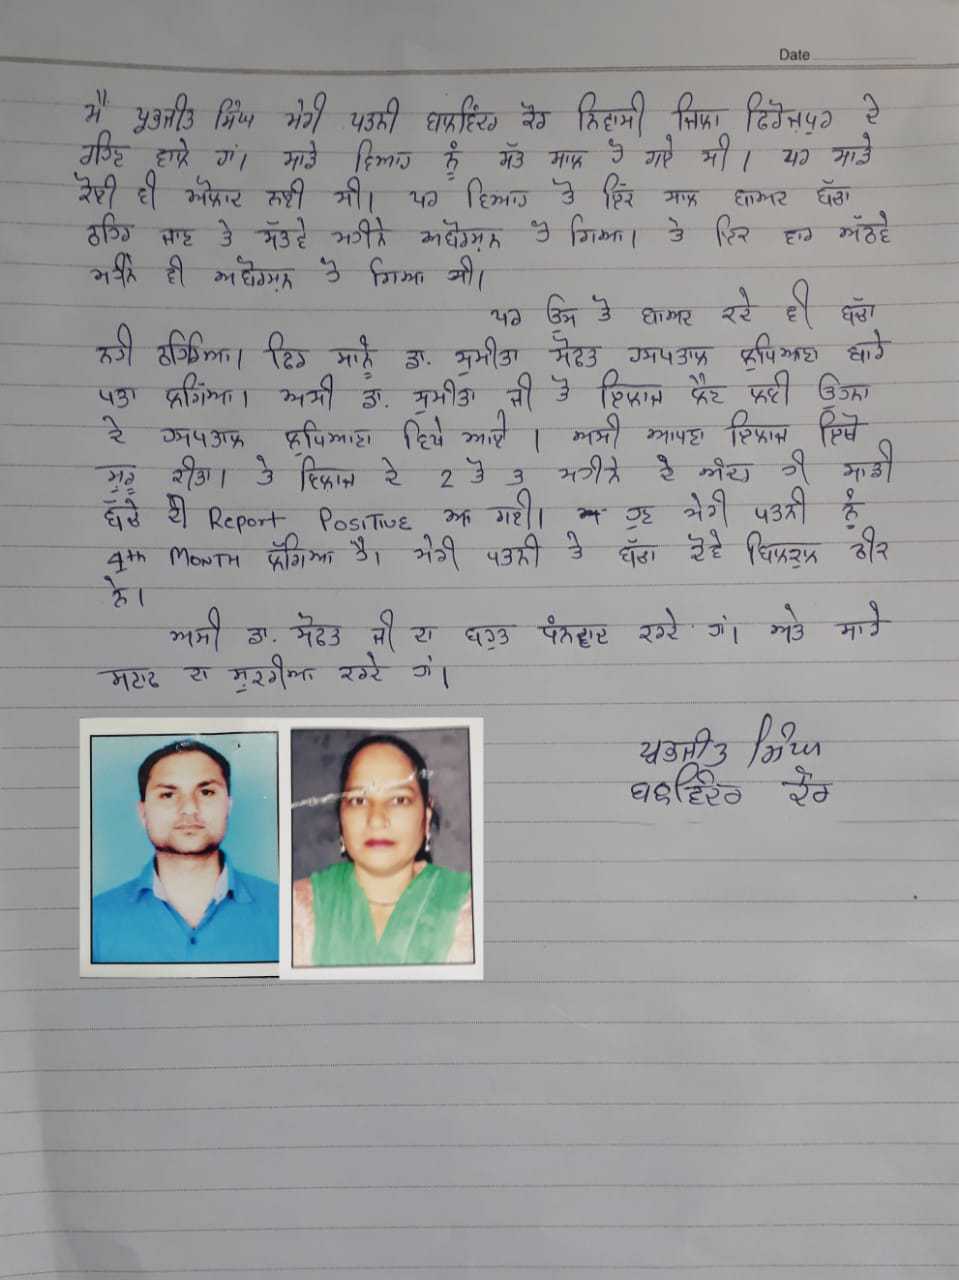 Date
ਮੈਂ ਪ੍ਰਤਜੀਤ ਸਿੰਘ ਮੇਰੀ ਪਤਨੀ ਬਲਵਿੰਦਰ ਕੌਰ ਨਿਵਾਸੀ ਜਿਲਾ ਫਿਰੋਜਪੁਰ ਦੇ
ਰਹਿਣ ਵਾਲੇ ਹਾਂ। ਸਾਡੇ ਵਿਆਹ ਨੂੰ ਸੱਤ ਸਾਲ ਹੋ ਗਏ ਸੀ। ਪਰ ਸਾਡੇ
ਕੋਈ ਵੀ ਔਲਾਦ ਨਹੀ ਸੀ। ਪਰ ਵਿਆਹ ਤੋ ਇੱਕ ਸਾਲ ਬਾਅਦ ਬੱਚਾ
ਠਹਿਰ ਜਾਣ ਤੇ ਸੱਤਵੇ ਮਹੀਨੇ ਅਬੋਰਸ਼ਨ ਹੋ ਗਿਆ। ਤੇ ਇਕ ਵਾਰ ਅੱਠਵੇ
ਮਹੀਨੇ ਵੀ ਅਬੋਰਸ਼ਨ ਹੋ ਗਿਆ ਸੀ।
ਪਰ ਉਸ ਤੋ ਬਾਅਦ ਕਦੇ ਵੀ ਬੱਚਾ
ਨਹੀ ਠਹਿਰਿਆ। ਫਿਰ ਸਾਨੂੰ ਡਾ. ਸੁਮੀਤਾ ਸੋਫਤ ਹਸਪਤਾਲ ਲੁਧਿਆਣਾ ਬਾਰੇ
ਪਤਾ ਲਗਿਆ। ਅਸੀ ਡਾ. ਸੁਮੀਤਾ ਜੀ ਤੋ ਇਲਾਜ ਲੈਣ ਲਈ ਉਹਨਾ
ਦੇ ਹਸਪਤਾਲ ਲੁਧਿਆਣਾ ਵਿਖੇ ਆਏ। ਅਸੀ ਆਪਣਾ ਇਲਾਜ ਇਥੋ
ਸ਼ੁਰੂ ਕੀਤਾ। ਤੇ ਇਲਾਜ ਦੇ 2 ਤੋ 3 ਮਹੀਨੇ ਦੇ ਅੰਦਰ ਹੀ ਸਾਡੀ
ਬੱਚੇ ਦੀ Report POSITIVE ਆ ਗਈ। ਹੁਣ ਮੇਰੀ ਪਤਨੀ ਨੂੰ
4th MONTH ਲੱਗਿਆ ਹੈ। ਮੇਰੀ ਪਤਨੀ ਤੇ ਬੱਚਾ ਦੋਵੇ ਬਿਲਕੁਲ ਠੀਕ
ਨੇ।
ਅਸੀ ਡਾ. ਸੋਫਤ ਜੀ ਦਾ ਬਹੁਤ ਧੰਨਵਾਦ ਕਰਦੇ ਹਾਂ। ਅਤੇ ਸਾਰੇ
ਸਟਾਫ ਦਾ ਸ਼ੁਕਰੀਆ ਕਰਦੇ ਹਾਂ।
ਪ੍ਰਤਜੀਤ ਸਿੰਘ
ਬਲਵਿੰਦਰ ਕੌਰ